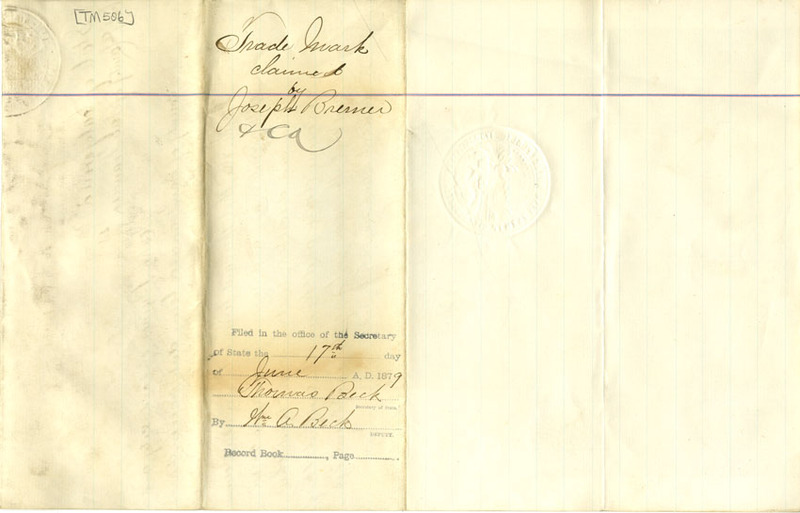 [TM506]
Trade Mark
claimed
by
Joseph Bremer
& Co
Filed in the office of the Secretary
of State the 17th day
of June A. D. 1879
Thomas Beck
Secretary of State.
By Wm A. Beck
DEPUTY.
Record Book , Page